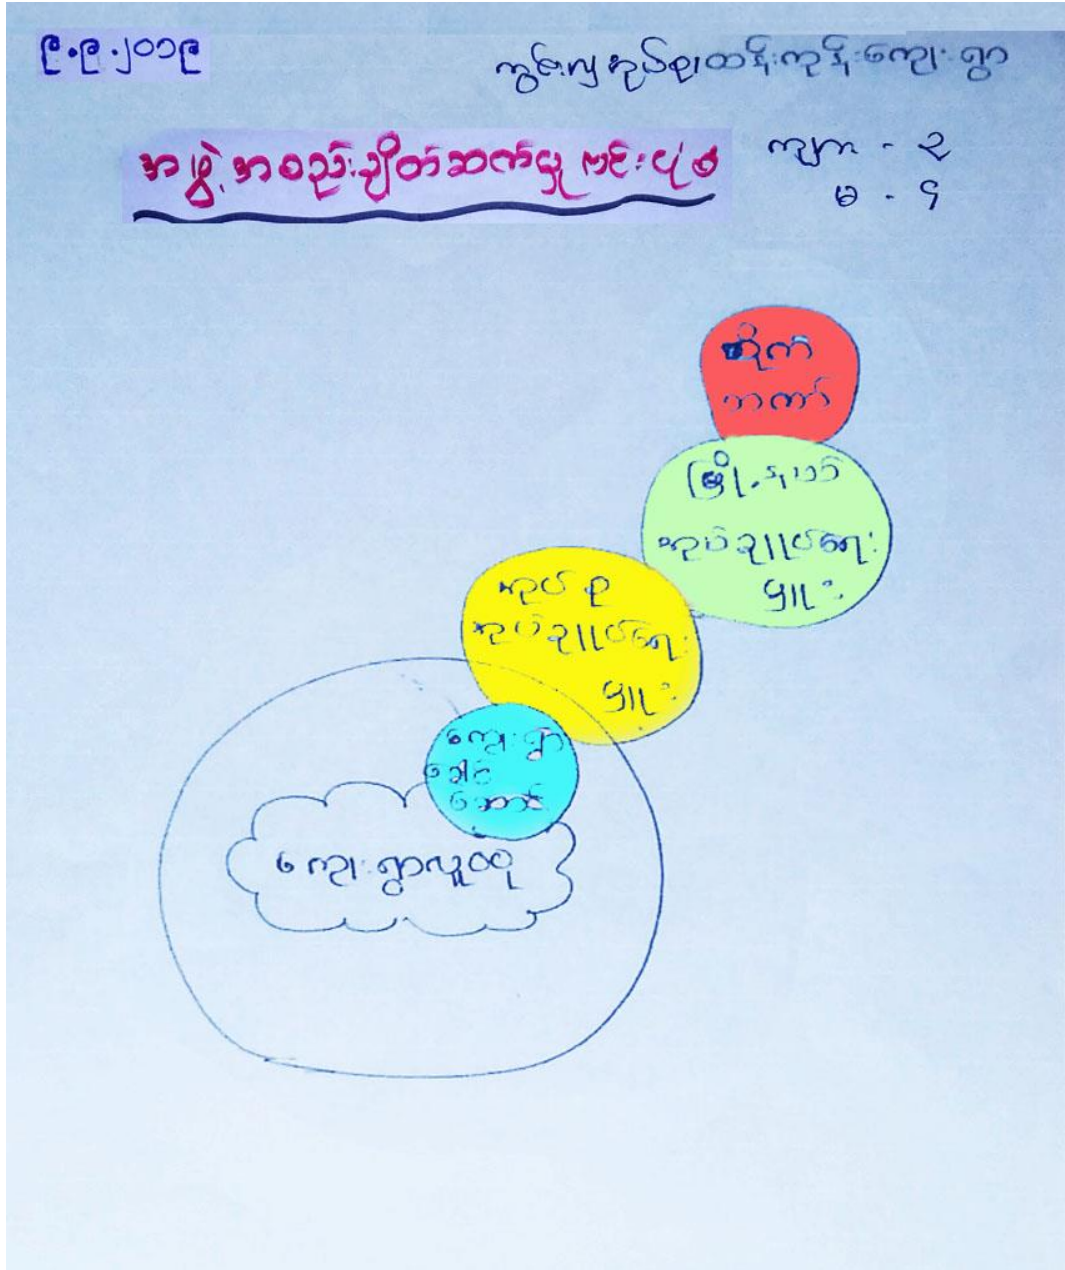 ၉.၉.၂၀၁၉
ကွင်းလှအုပ်စု၊ထန်းကုန်းကျေးရွာ
အဖွဲ့အစည်းချိတ်ဆက်မှု ဗင်းပုံစံ
ကျား - ၃
မ - ၄
တိုက်
နယ်
မြို့နယ်
အုပ်ချုပ်ရေး
မှူး
အုပ်စု
အုပ်ချုပ်ရေး
မှူး
ကျေးရွာ
ခေါင်း
ဆောင်
ကျေးရွာလူထု